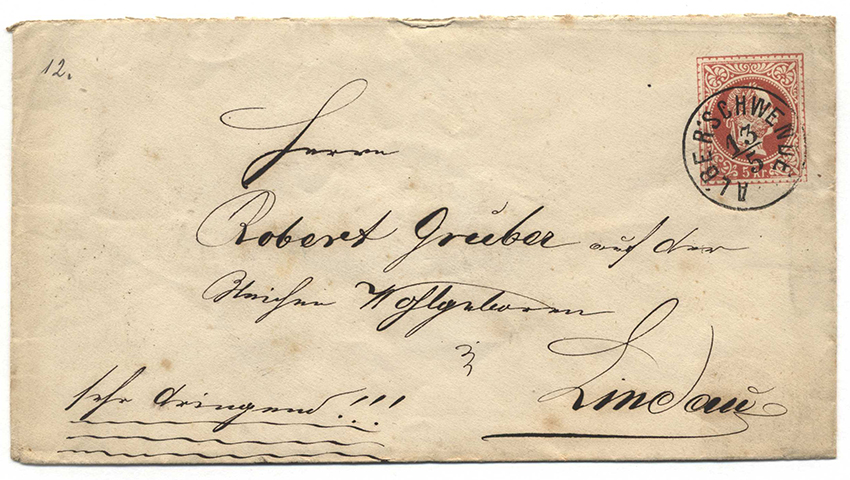 12.
ALBERSCHWENDE
13/5
5 Kr.
Herrn
Robert Gruber auf der
Wohlgeboren
in
Lindau
Sehr dringend!!!